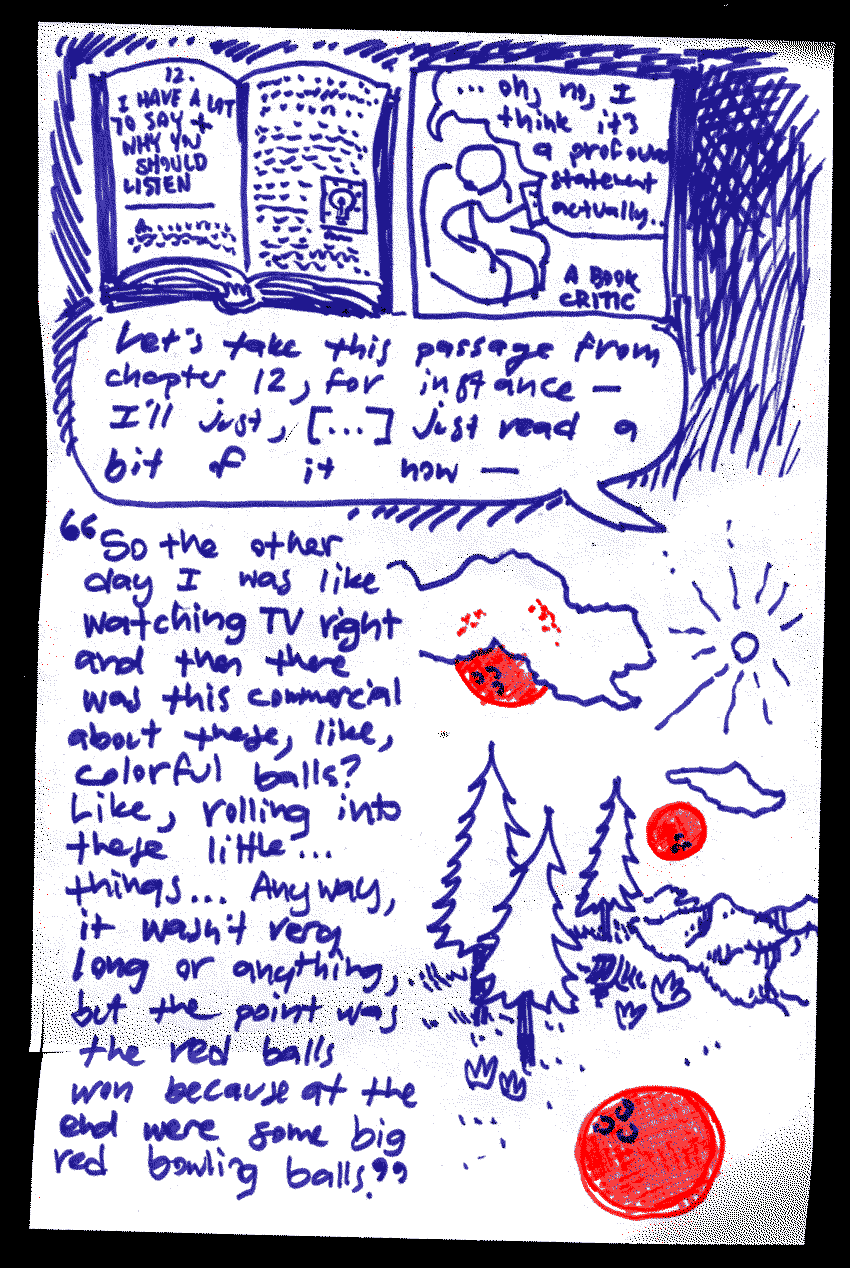 12.
I HAVE A LOT
TO SAY +
WHY YOU
SHOULD
LISTEN
... oh, no, I
think it's
a profound
statement
actually..
A BOOK
CRITIC
Let's take this passage from
chapter 12, for instance —
I'll just, [...] just read a
bit of it now —
“So the other
day I was like
watching TV right
and then there
was this commercial
about these, like,
colorful balls?
Like, rolling into
these little...
things... Anyway,
it wasn't very
long or anything,
but the point was
the red balls
won because at the
end were some big
red bowling balls.”